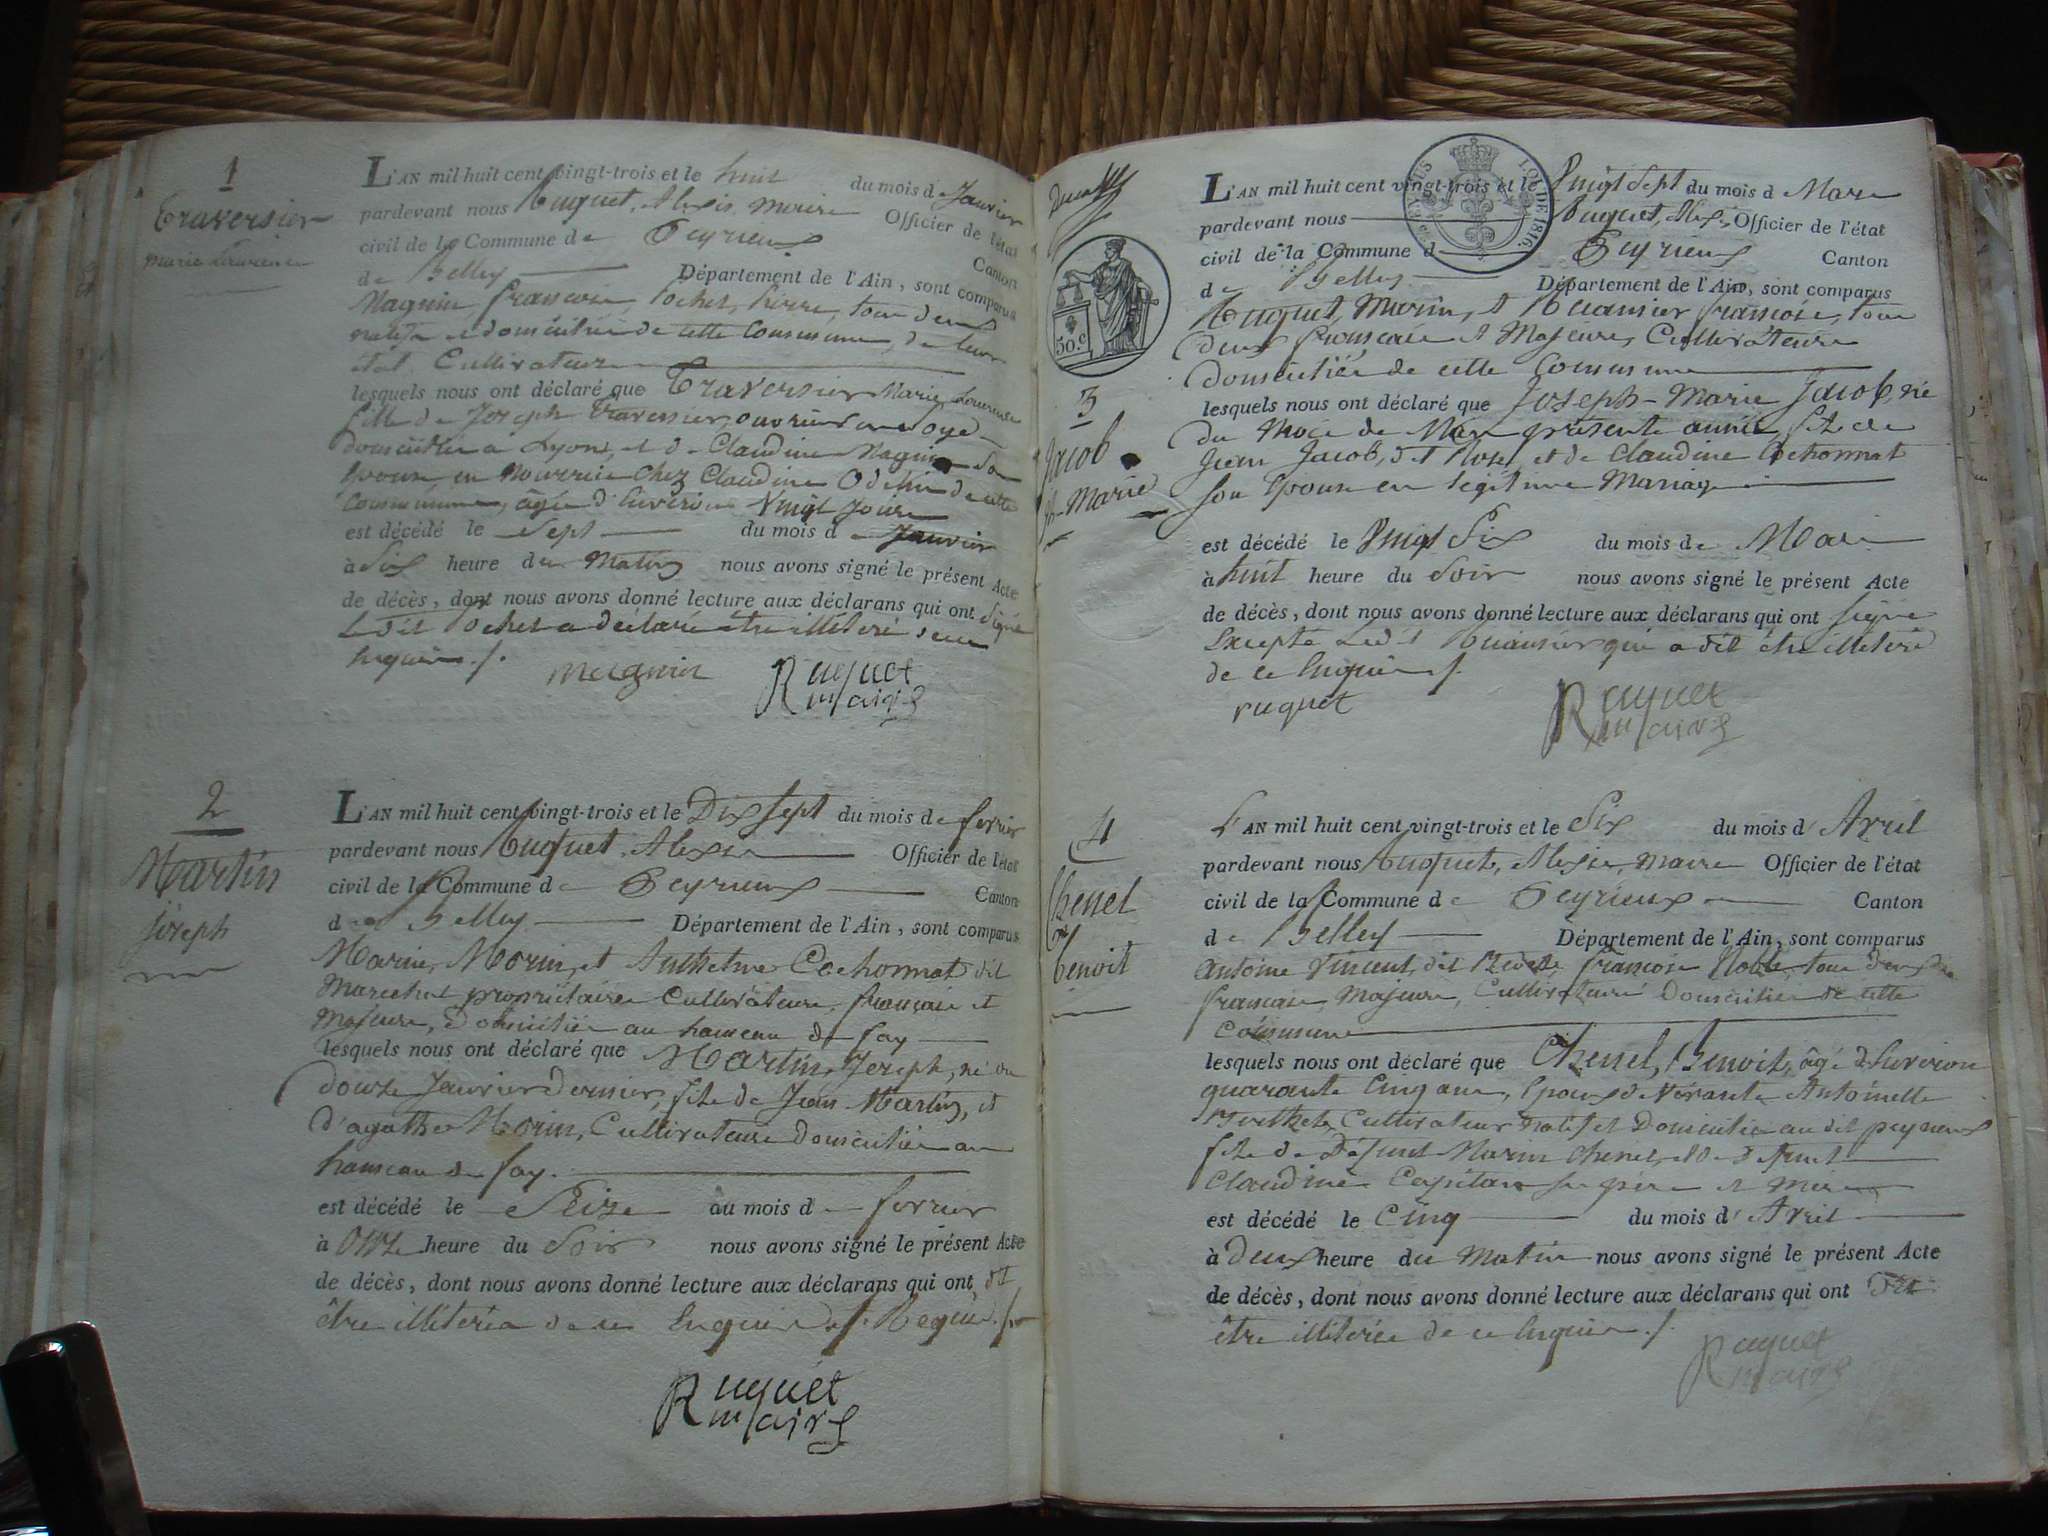 1
Traversier
marie Laurence
L'AN mil huit cent vingt-trois et le huit du mois de Janvier
pardevant nous Ruquet, Alexis maire Officier de l'état
civil de la Commune de Peyrieux Canton
de Belley Département de l'Ain, sont comparus
Magnin françois, Pochet, Pierre, tous deux
natifs et domiciliés de cette Commune, de leur
état Cultivateurs
lesquels nous ont déclaré que Traversier Marie Laurence
fille de Joseph Traversier, ouvrier en soye
domicilié à Lyon, et de Claudine Magnin son
épouse en nourrice chez Claudine de cette
Commune, âgée d'environ Vingt Jours
est décédé le Sept du mois de Janvier
à Six heure du Matin nous avons signé le présent Acte
de décès, dont nous avons donné lecture aux déclarans qui ont Signé
Ledit Pochet a déclaré être illiteré de ce
enquis ./.
magnin Ruquet
maire
2
Martin
joseph
L'AN mil huit cent vingt-trois et le Dix Sept du mois de fevrier
pardevant nous Ruquet, Alexis Officier de l'état
civil de la Commune de Peyrieux Canton
de Belley Département de l'Ain, sont comparus
Marin, Morin, et Anthelme Cochonnat dit
Marechal propriétaires Cultivateurs, français et
Majeurs, domiciliés au hameau de fay
lesquels nous ont déclaré que Martin, Joseph, né du
douze Janvier dernier, fils de Jean Martin, et
d'agathe Morin, Cultivateurs domiciliés au
hameau de fay.
est décédé le Seize du mois de fevrier
à Onze heure du Soir nous avons signé le présent Acte
de décès, dont nous avons donné lecture aux déclarans qui ont dit
être illiterés de ce Enquis et Requis ./.
Ruquet
maire
50.c
3
Jacob
jh-Marie
LOI DE 1816.
L'AN mil huit cent vingt-trois et le Vingt Sept du mois d Mars
pardevant nous Ruquet, Alexis, Officier de l'état
civil de la Commune d Peyrieux Canton
de Belley Département de l'Ain, sont comparus
Ruquet, Marin, et françois, tous
deux français et Majeurs, Cultivateurs
domiciliés de cette Commune
lesquels nous ont déclaré que Joseph-Marie Jacob, né
du Mois de Mars présente année, fils de
Jean Jacob, dit et de Claudine Cochonnat
son épouse en légitime Mariage
est décédé le Vingt Six du mois de Mars
à huit heure du Soir nous avons signé le présent Acte
de décès, dont nous avons donné lecture aux déclarans qui ont signé
Excepté Ledit qui a dit être illiteré
de ce Enquis ./.
ruquet Ruquet
maire
4
Chenel
benoit
L'AN mil huit cent vingt-trois et le Six du mois d'Avril
pardevant nous Ruquet, Alexis, maire Officier de l'état
civil de la Commune de Peyrieux Canton
de Belley Département de l'Ain, sont comparus
Antoine Vincent, dit françois Noble, tous deux
français, Majeurs, Cultivateurs Domiciliés de cette
Commune
lesquels nous ont déclaré que Chenel, Benoit, âgé d'Environ
quarante Cinq ans, Epoux de Vivante Antoinette
Berthet, Cultivateur natif et Domicilié au dit peyrieux
fils de Défunt Marin Chenel, et de Défunte
Claudine Capitan ses père et mère
est décédé le Cinq du mois d'Avril
à deux heure du Matin nous avons signé le présent Acte
de décès, dont nous avons donné lecture aux déclarans qui ont Dit
être illiterés de ce Enquis ./.
Ruquet
maire